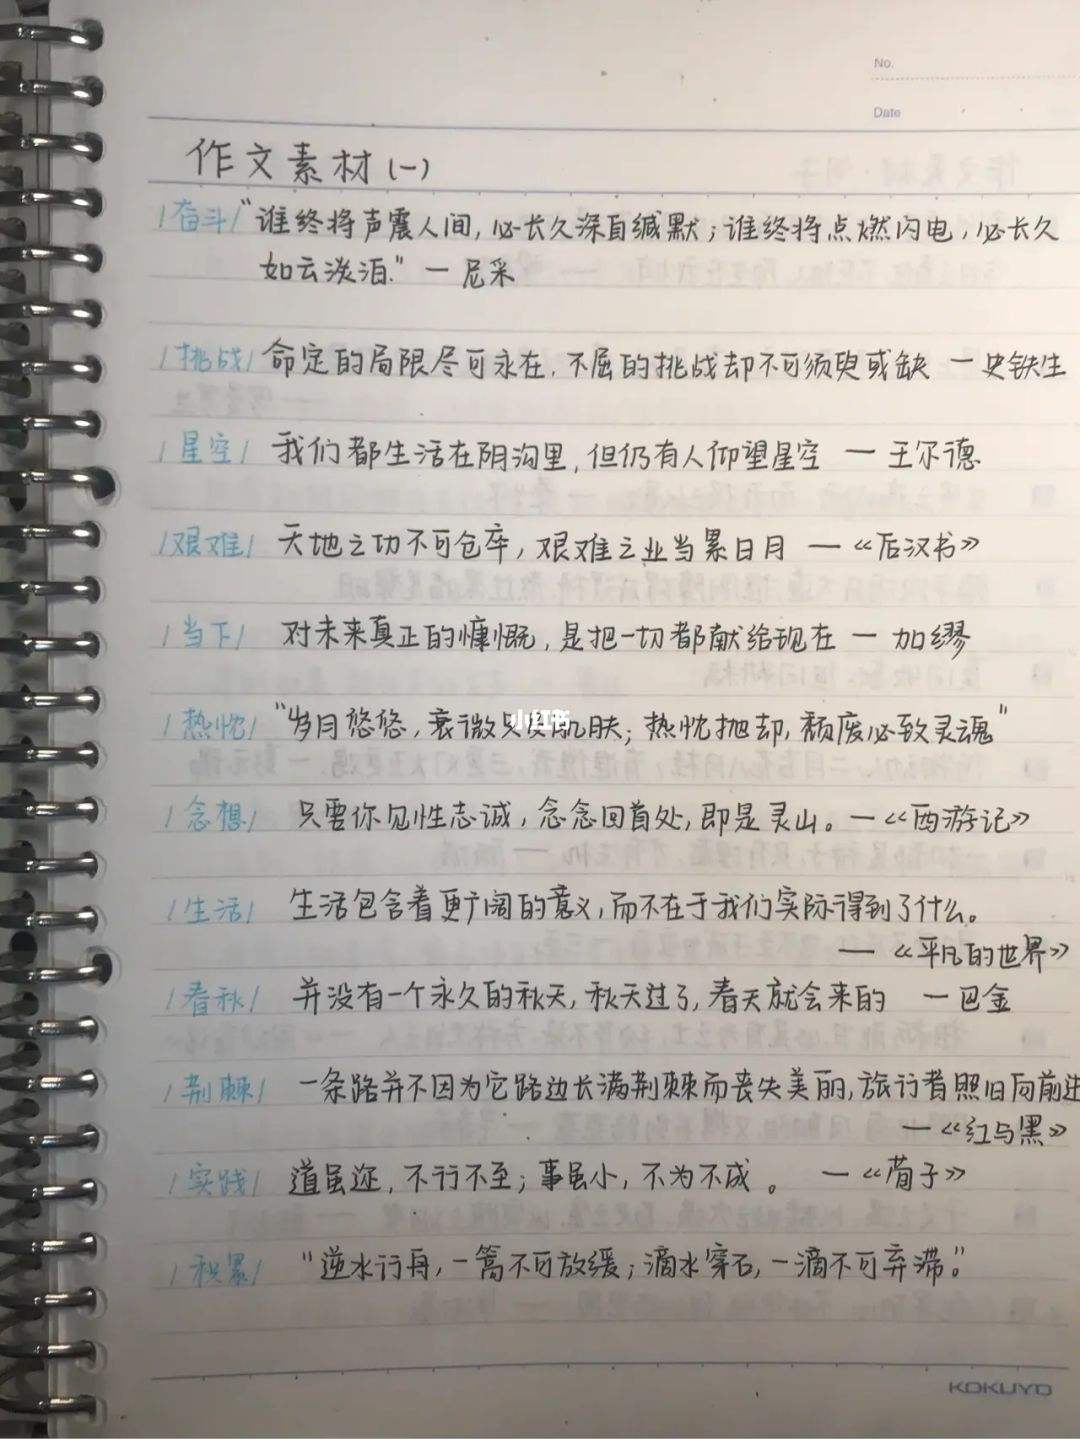 No.
Date
作文素材(一)
/奋斗/ “谁终将声震人间，必长久深自缄默；谁终将点燃闪电，必长久
如云淡泊.” — 尼采
/挑战/ 命定的局限尽可永在，不屈的挑战却不可须臾或缺 — 史铁生
/星空/ 我们都生活在阴沟里，但仍有人仰望星空 — 王尔德
/艰难/ 天地之功不可仓卒，艰难之业当累日月 — 《后汉书》
/当下/ 对未来真正的慷慨，是把一切都献给现在 — 加缪
/热忱/ “岁月悠悠，衰微只及肌肤；热忱抛却，颓废必致灵魂”
小红书
/念想/ 只要你见性志诚，念念回首处，即是灵山。—《西游记》
/生活/ 生活包含着更广阔的意义，而不在于我们实际得到了什么。
— 《平凡的世界》
/春秋/ 并没有一个永久的秋天，秋天过了，春天就会来的 — 巴金
/荆棘/ 一条路并不因为它路边长满荆棘而丧失美丽，旅行者照旧向前进
— 《红与黑》
/实践/ 道虽迩，不行不至；事虽小，不为不成。 — 《荀子》
/积累/ “逆水行舟，一篙不可放缓；滴水穿石，一滴不可弃滞。”
KOKUYO